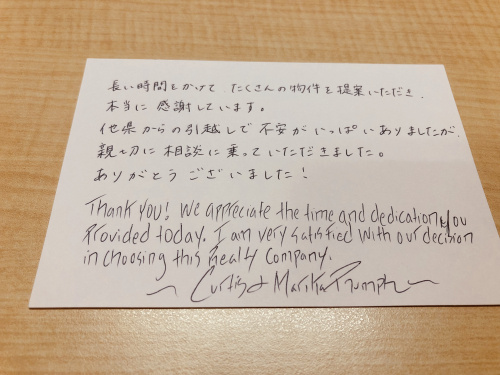 長い時間をかけて、たくさんの物件を提案いただき、
本当に感謝しています。
他県からの引越しで不安がいっぱいありましたが、
親切に相談に乗っていただきました。
ありがとうございました!
Thank you! We appreciate the time and dedication you
provided today. I am very satisfied with our decision
in choosing this Realty Company.
~ Curtis & Marika